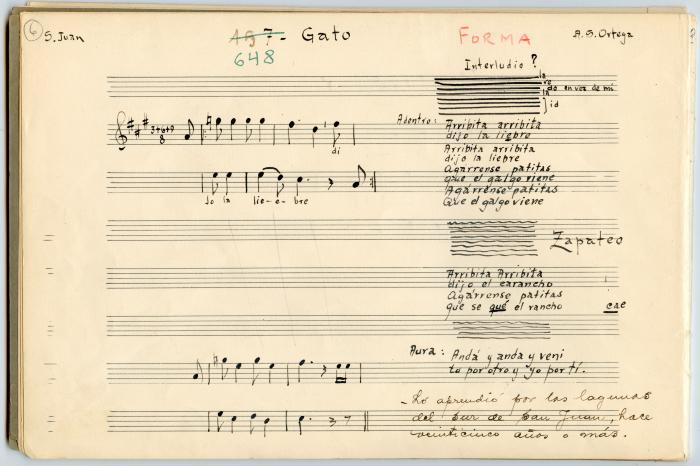 6 S. Juan
197- Gato
648
FORMA
A. S. Ortega
Interludio ?
la
re
do en vez de mi
la
id
3+6+9
8
di
Adentro: Arribita arribita
dijo la liebre
Arribita arribita
dijo la liebre
Agárrense patitas
que el galgo viene
Agárrense patitas
Que el galgo viene
Jo la lie-e-bre
Zapateo
Arribita Arribita
dijo el carancho
Agárrense patitas
que se qué el rancho cae
Aura: Andá y anda y vení
Lo por otro y yo por tí.
-Lo aprendió por las lagunas
del sur de San Juan, hace
veinticinco años o más.